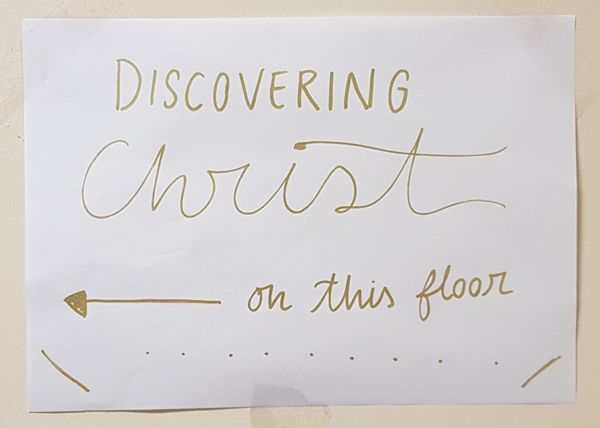 DISCOVERING
Christ
on this floor